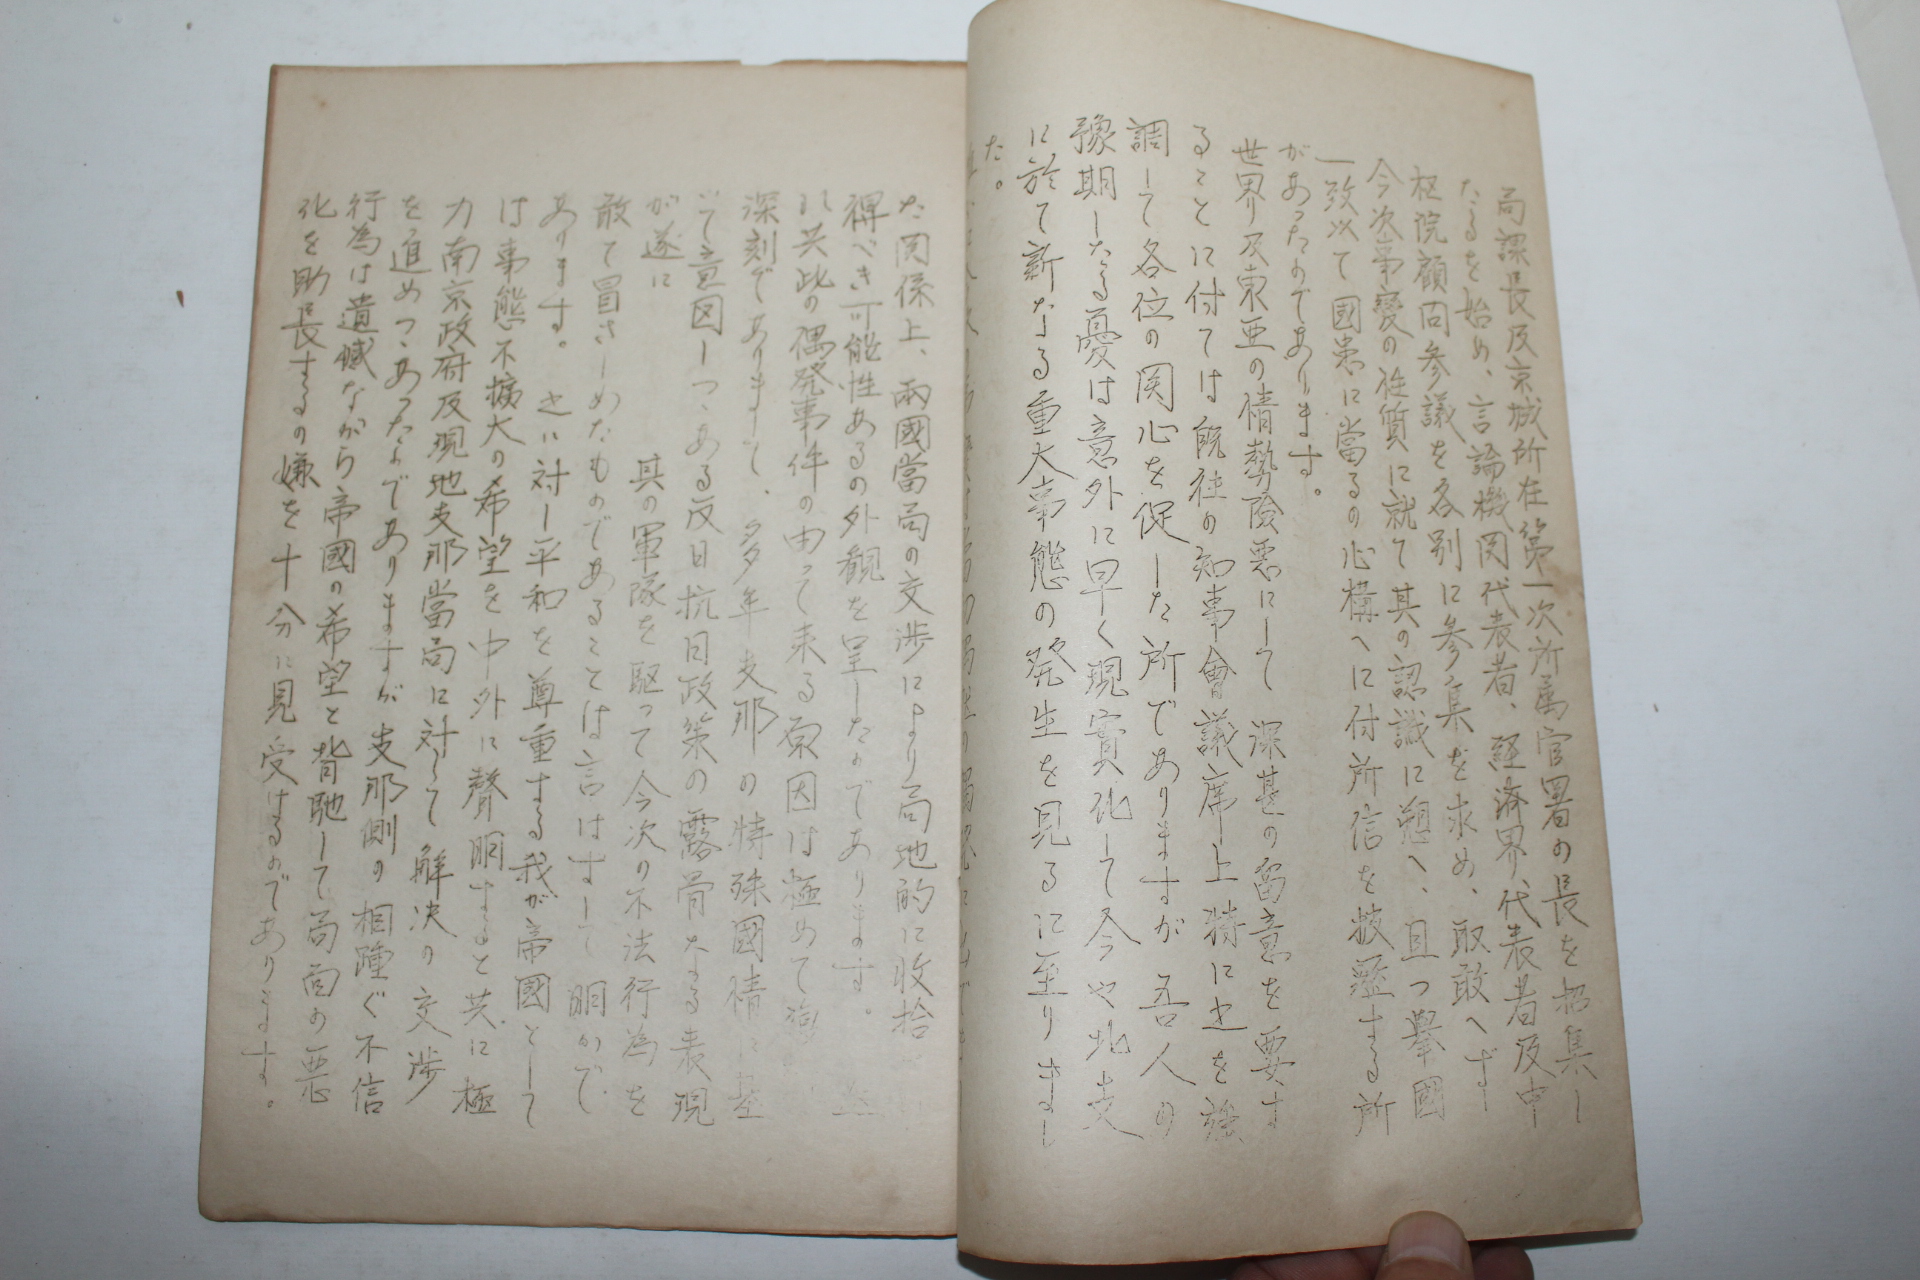 局課長及京城所在第一次所属官署の長を招集し
たるを始め、言論機関代表者、経済界代表者及中
枢院顧問参議を各別に参集を求め、取敢へず
今次事變の性質に就て其の認識に愬へ、且つ擧國
一致以て國患に當るの心構へに付所信を披瀝する所
があつたのであります。
世界及東亜の情勢險悪にして 深甚の留意を要す
ることに付ては既往の知事會議席上特に之を強
調して各位の関心を促した所でありますが吾人の
豫期したる憂は意外に早く現實化して今や北支
に於て新なる重大事態の発生を見るに至りまし
た。
た関係上、兩國當局の交渉により局地的に收拾
得べき可能性あるの外観を呈したのであります。
れ共此の偶発事件の由つて来る原因は極めて
深刻でありまして、多年支那の特殊國情に基
いて意図しつゝある反日抗日政策の露骨なる表現
が遂に 其の軍隊を駆つて今次の不法行為を
敢て冒さしめたものであることは言はずして明かで
あります。之に対し平和を尊重する我が帝國として
は事態不擴大の希望を中外に聲明すると共に極
力南京政府及現地支那當局に対して解決の交渉
を進めつゝあつたのでありますが支那側の相踵ぐ不信
行為は遺憾ながら帝國の希望と背馳して局面の悪
化を助長するの嫌を十分に見受けるのであります。